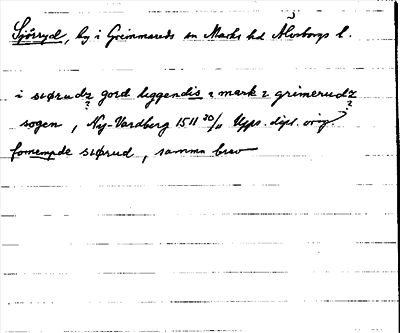 Sjörryd, by i Grimmareds sn Marks hd Älvsborgs l.
i siørudz gord liggendis i mark i grimerudz
sogen, Ny-Vardberg 1511 30/11 Upps. dipl. orig.
fornempde siørud, samma brev